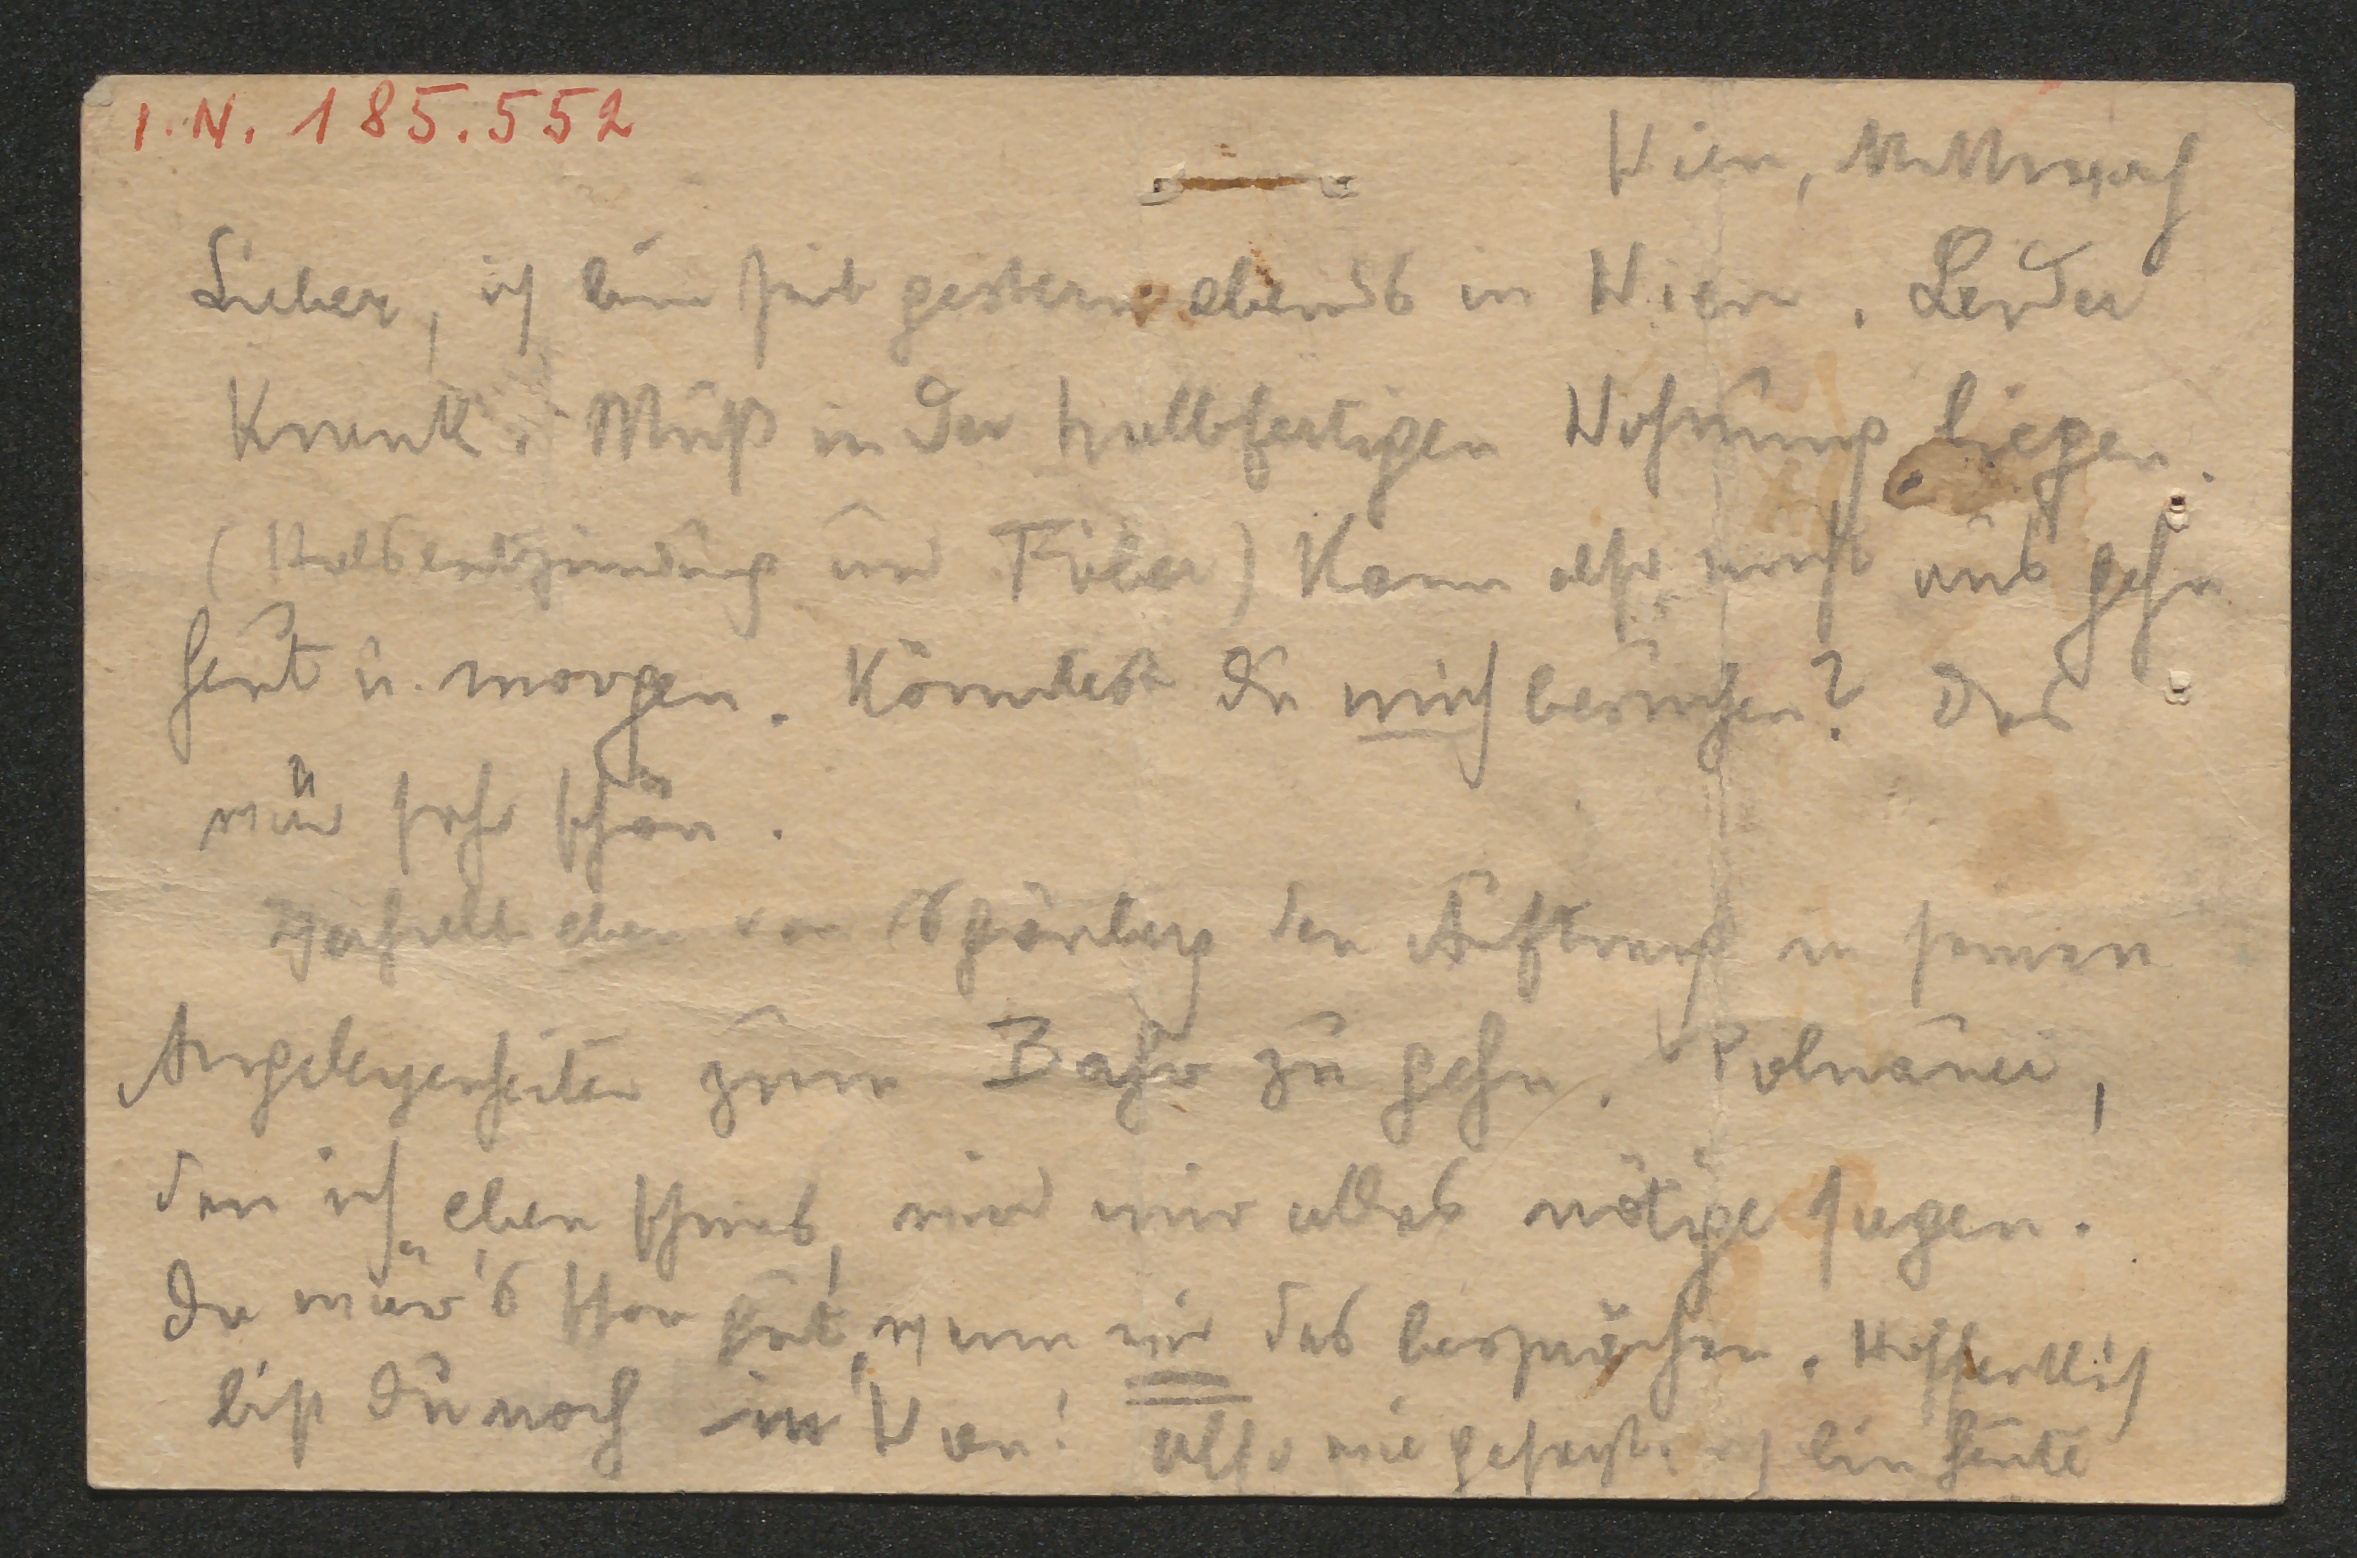 I.N. 185.552
Wien, Mittwoch
Lieber, ich bin seit gestern abends in Wien. Leider
Krank. Muß in der halbfertigen Wohnung liegen.
(Halsentzündung und Fieber) Kann also nicht aus gehn
heut u. morgen. Könntest du mich besuchen? Das
wär sehr schön.
Erhielt eben von Schönberg den Auftrag in seinen
Angelegenheiten zum Bahr zu gehn. Polnauer,
dem ich eben schrieb, wird mir alles nötige sagen.
Da wär's schon gut, wenn wir das besprächen. Hoffentlich
bist du noch in Wien! Also wie gesagt: ich bin heute